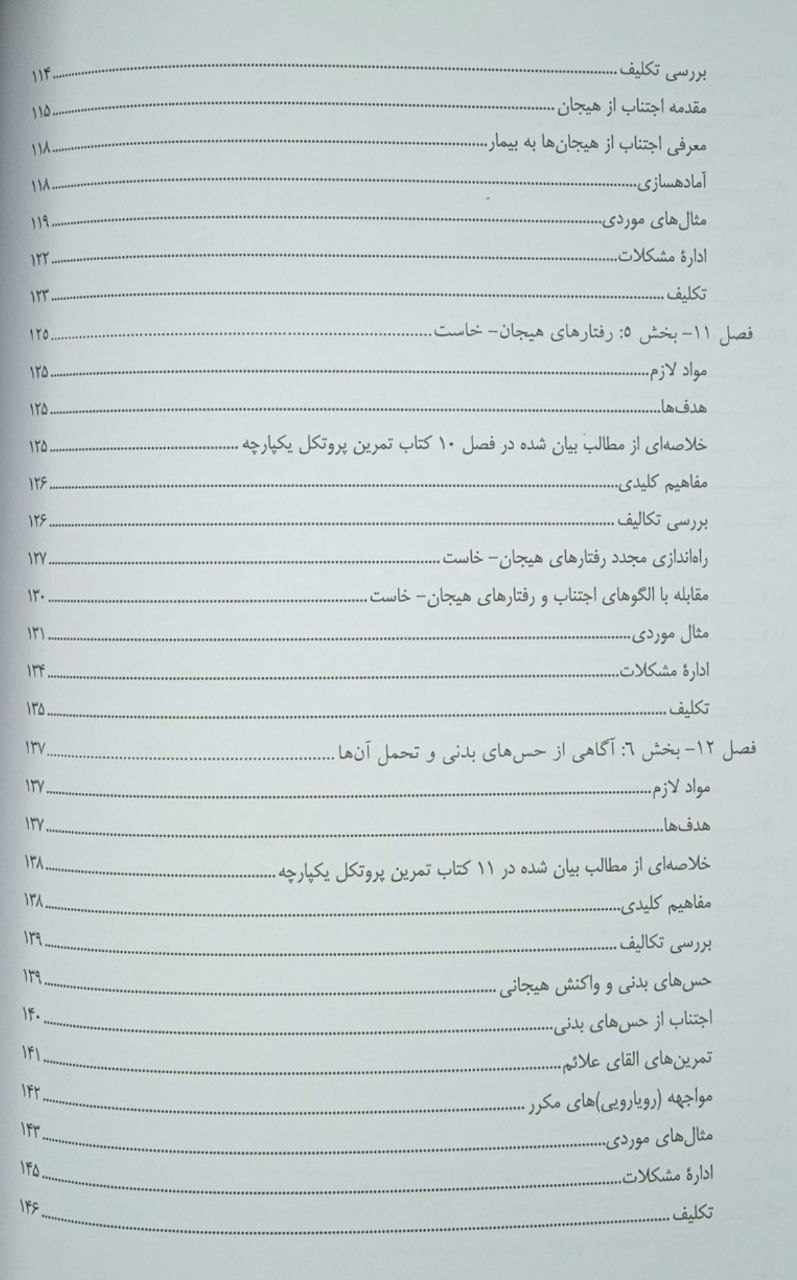 بررسی تکلیف ........ ۱۱۴
مقدمه اجتناب از هیجان ........ ۱۱۵
معرفی اجتناب از هیجان‌ها به بیمار ........ ۱۱۸
آمادهسازی ........ ۱۱۸
مثال‌های موردی ........ ۱۱۹
ادارهٔ مشکلات ........ ۱۲۲
تکلیف ........ ۱۲۳
فصل ۱۱- بخش ۵: رفتارهای هیجان- خاست ........ ۱۲۵
مواد لازم ........ ۱۲۵
هدف‌ها ........ ۱۲۵
خلاصه‌ای از مطالب بیان شده در فصل ۱۰ کتاب تمرین پروتکل یکپارچه ........ ۱۲۵
مفاهیم کلیدی ........ ۱۲۶
بررسی تکالیف ........ ۱۲۶
راه‌اندازی مجدد رفتارهای هیجان- خاست ........ ۱۲۷
مقابله با الگوهای اجتناب و رفتارهای هیجان- خاست ........ ۱۳۰
مثال موردی ........ ۱۳۱
ادارهٔ مشکلات ........ ۱۳۴
تکلیف ........ ۱۳۵
فصل ۱۲- بخش ۶: آگاهی از حس‌های بدنی و تحمل آن‌ها ........ ۱۳۷
مواد لازم ........ ۱۳۷
هدف‌ها ........ ۱۳۷
خلاصه‌ای از مطالب بیان شده در ۱۱ کتاب تمرین پروتکل یکپارچه ........ ۱۳۸
مفاهیم کلیدی ........ ۱۳۸
بررسی تکالیف ........ ۱۳۹
حس‌های بدنی و واکنش هیجانی ........ ۱۳۹
اجتناب از حس‌های بدنی ........ ۱۴۰
تمرین‌های القای علائم ........ ۱۴۱
مواجهه (رویارویی)های مکرر ........ ۱۴۲
مثال‌های موردی ........ ۱۴۳
ادارهٔ مشکلات ........ ۱۴۵
تکلیف ........ ۱۴۶